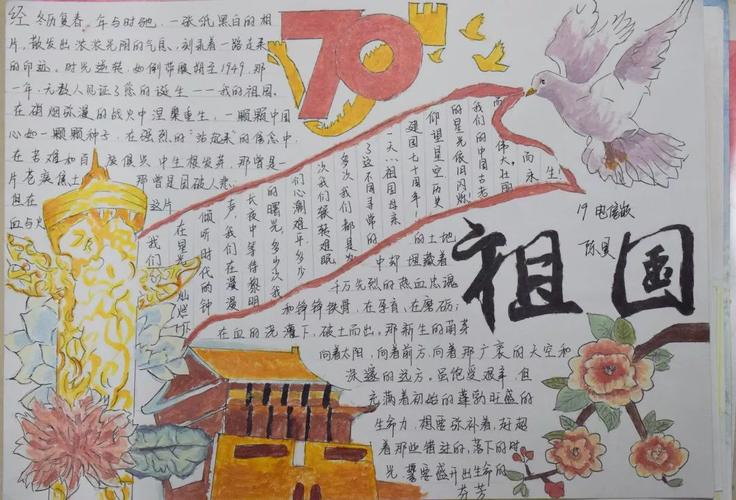 70
经冬历夏春，年与时驰，一张纸黑白的相
片，散发出浓浓光阴的气息，刻录着一路走来
的印迹。时光逆转，如倒带般朔至1949，那
一年，无数人见证了您的诞生——我的祖国。
在硝烟弥漫的战火中涅槃重生，一颗颗中国
心如一颗颗种子，在强烈的“站起来”的信念中，
在苦难和百废俱兴中生根发芽，那曾是一
片 焦土 那曾是国破人悲
但在 这片
血与火 的土地
中却埋藏着
千万先烈的热血忠魂
和铮铮铁骨，在孕育，在磨砺；
在血的洗礼下，破土而出。那新生的萌芽
向着太阳，向着前方，向着那广袤的天空和
深邃的远方。虽饱受艰辛，但
充满着初始的蓬勃旺盛的
生命力，想要弥补着，超越
着那些错过的，落下的时
光，要盛开出生命的
芬芳
我们
在星光灿烂下
倾听时代的钟
声，我们在漫漫
长夜中等待黎明
的曙光，多少次我
们心潮难平，多少
次我们辗转难眠
多次我们都是为
了这不同寻常的
一天…祖国母亲
建国七十周年！
仰望星空历史
的星光依旧闪烁
我们的中国古老
而伟大壮丽
而永生！
19电信
陈
祖国